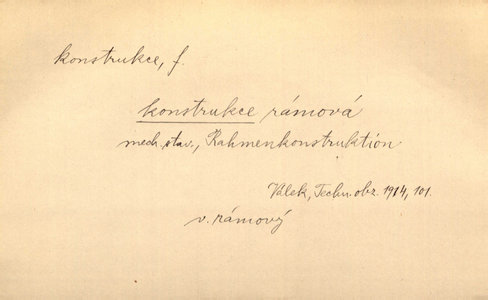 konstrukce, f.
konstrukce rámová
mech. stav., Rahmenkonstruktion
Válek, Techn. obz. 1914, 101.
v. rámový